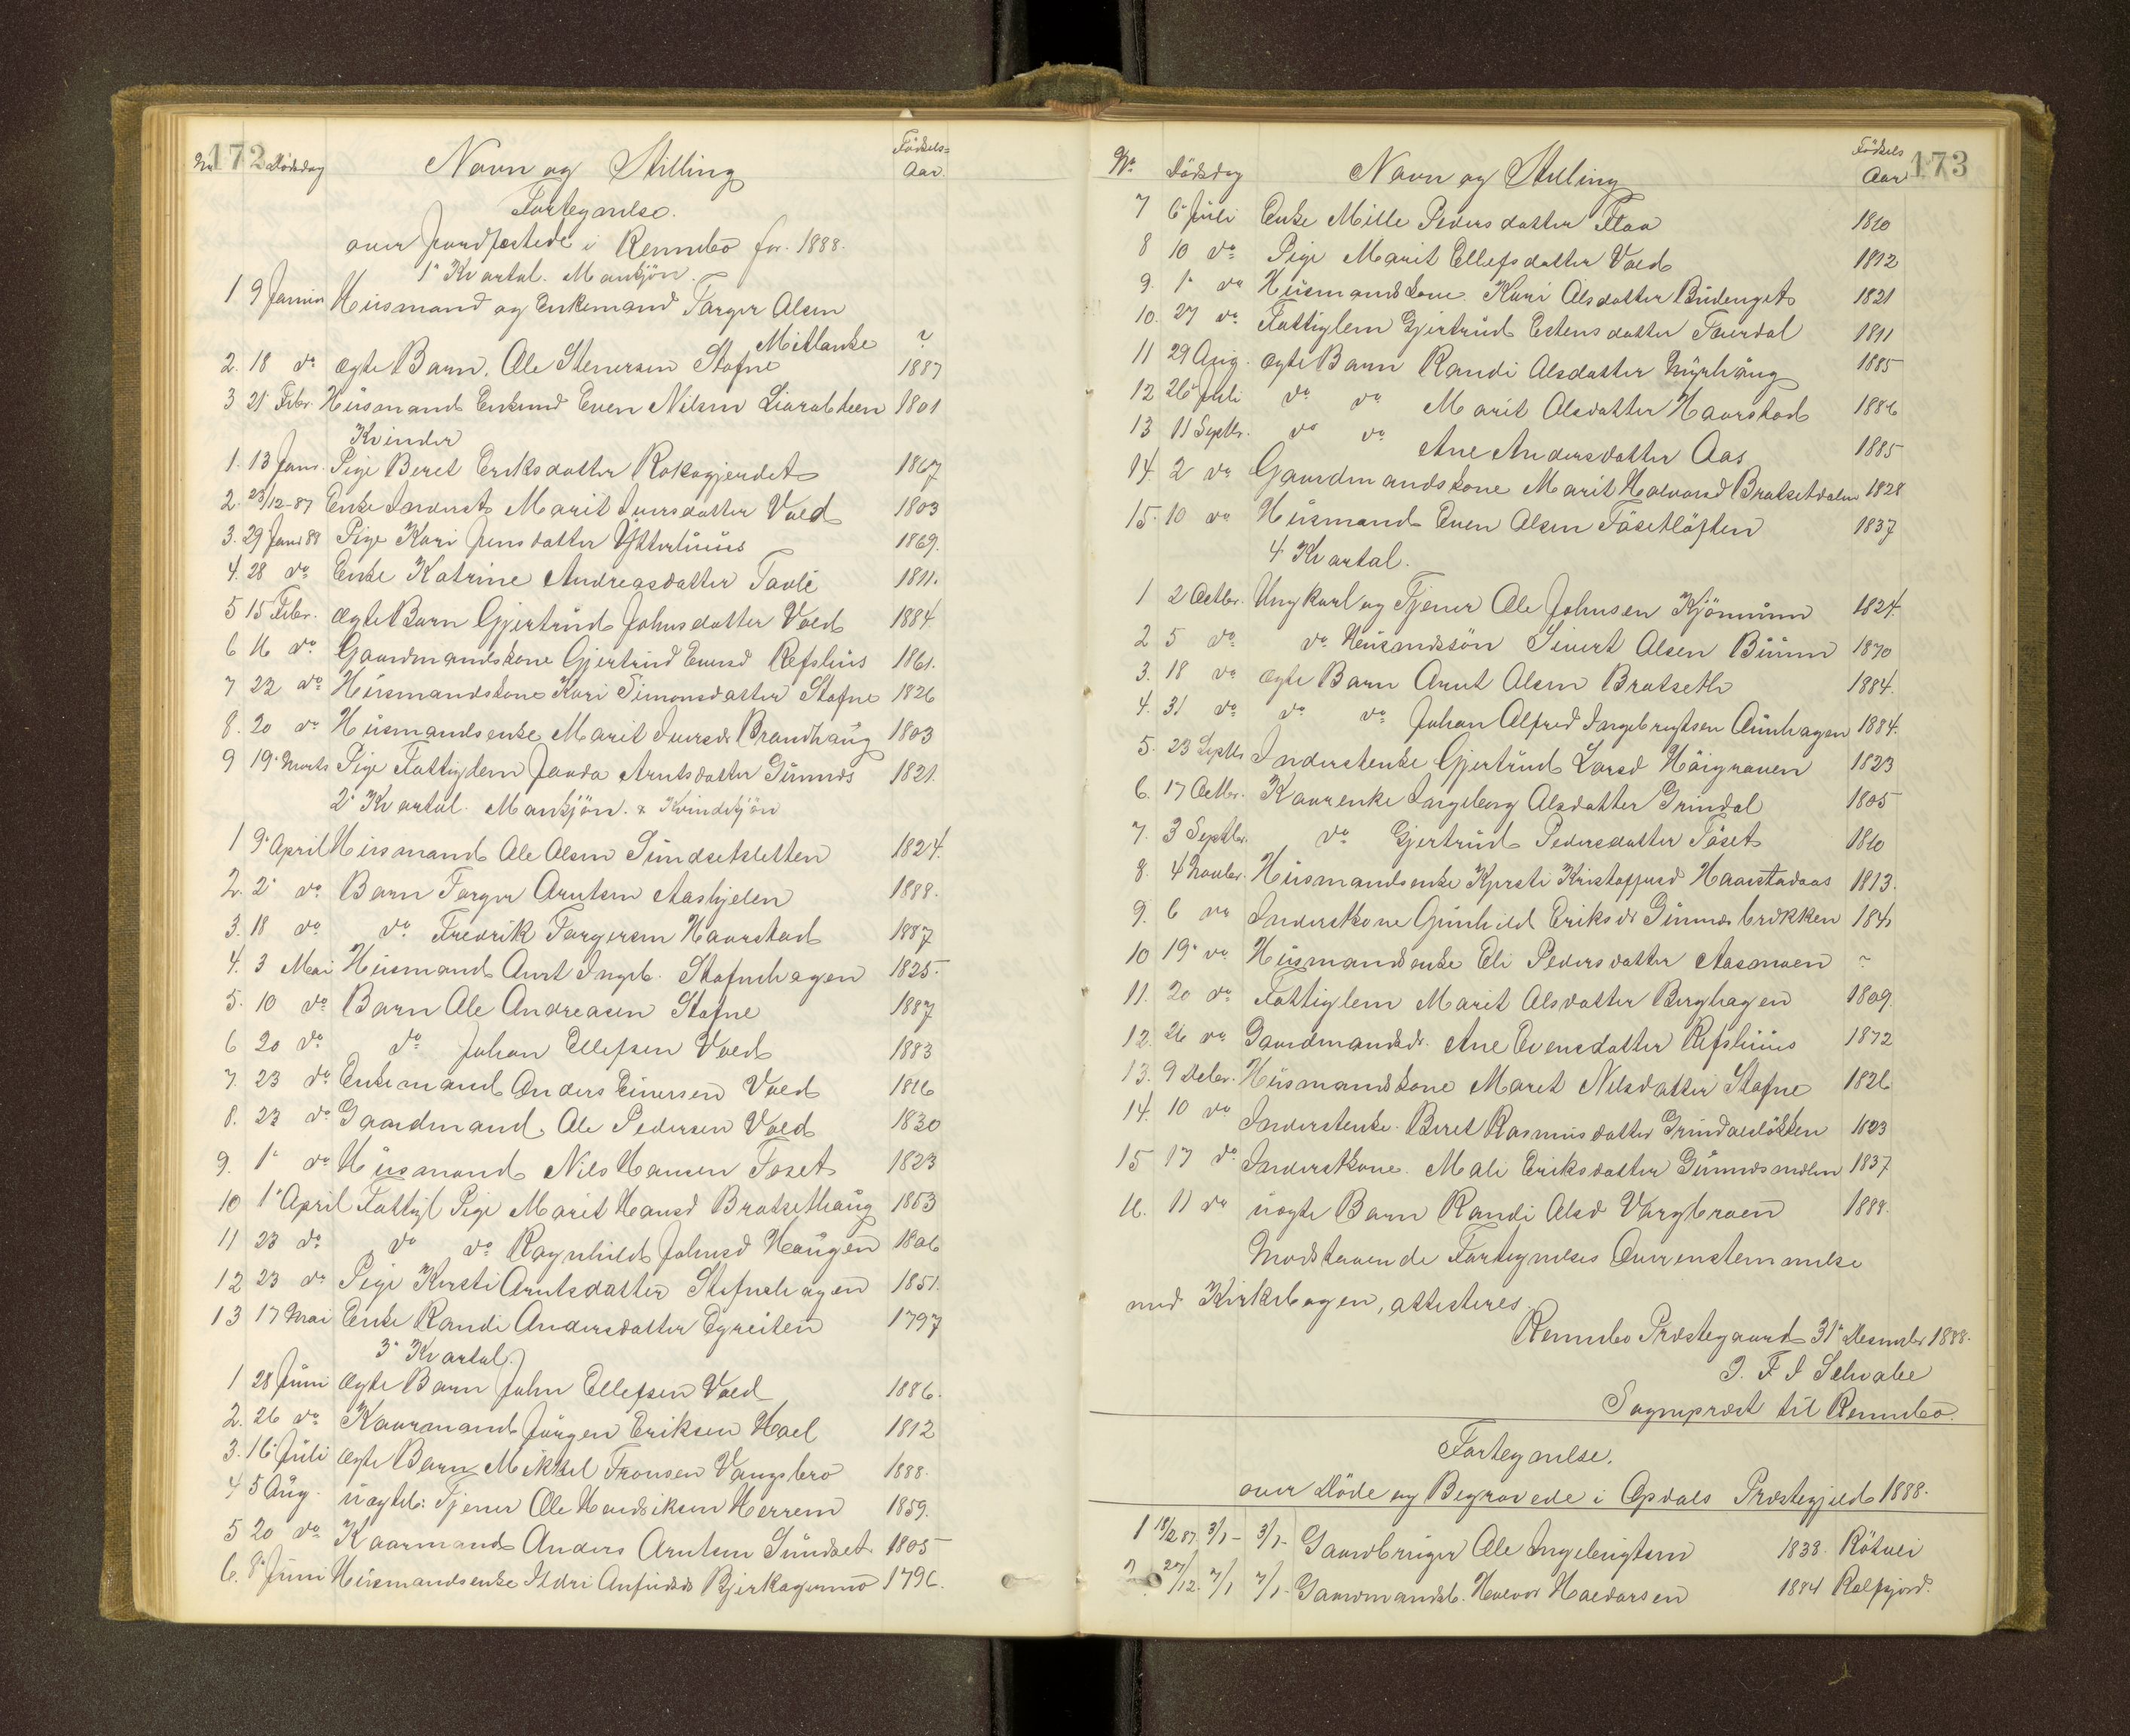 172
No Dödsdag Navn og Stilling Födsels= Aar
Fortegnelse.
over Jordfæstede i Rennebo for 1888.
1ste Kvartal. Mankjön.
1 9 Januar Husmand og Enkemand Torger Olsen
Mitlanke ?
2. 18 do ægte Barn, Ole Stenersen Stofne 1887
3 21 Febr. Husmand Enkmd Even Nilsen 1801
Kvinder
1. 13 Janr. Pige Beret Eriksdatter 1867
2. 23/12-87 Enke Inderst Marit Iversdatter Vold 1803
3. 29 Janr 88 Pige Kari Jensdatter Ytterhuus 1869.
4. 28 do Enke Katrine Andreasdatter 1811.
5 15 Febr. ægte Barn Gjertrud Johnsdatter Vold 1884
6 16 do Gaardmandskone Gjertrud Evensd Refshus 1861.
7 22 do Husmandskone Kari Simonsdatter Stofne 1826
8. 20 do Husmandsenke Marit Iversdr Brandhaug 1803
9 19 Marts Pige Fattiglem Arntsdatter Gunnes 1821.
2det Kvartal. Mankjön. & Kvindekjön
1 9 April Husmand Ole Olsen Sundsetsletten 1824.
2. 2 do Barn Torger Arntsen Aashjelen 1888.
3. 18 do do Fredrik Torgersen Haarstad 1887
4. 3 Mai Husmand Arnt Ingeb. Stofnehagen 1825.
5. 10 do Barn Ole Andreasen Stofne 1887
6 20 do do Johan Ellefsen Vold 1883
7. 23 do Enkemand Anders Einersen Vold 1816
8. 23 do Gaardmand, Ole Pedersen Vold 1830
9. 1 do Husmand Nils Hansen Foset 1823
10 1 April Fattigl Pige Marit Hansd Bratsethaug 1853
11 23 do do do Ragnhild Johnsd Haugen 1806
12 23 do Pige Kirsti Arntsdatter Stofnehagen 1851.
13 17 Mai Enke Randi Andersdatter 1797
3die Kvartal.
1 28 Juni ægte Barn John Ellefsen Vold 1886.
2. 26 do Kaarmand Jörgen Eriksen Hoel 1812
3. 16 Juli ægte Barn Mikkel Tronsen Vangsbro 1888.
4 5 Aug. uægteb: Tjener Ole Hendriksen Herrem 1859.
5 20 do Kaarmand Anders Arntsen Sundset 1805
6. 8 Juni Husmandsenke Ildri 1796.
173
No Dödsdag Navn og Stilling Födsels Aar
7 6 Juli Enke Mille Pedersdatter Flaa 1810
8 10 do Pige Marit Ellefsdatter Vold 1812
9. 1 do Husmandskone Kari Olsdatter 1821
10. 27 do Fattiglem Gjertrud Estensdatter 1811
11 29 Aug. ægte Barn Randi Olsdatter Myrhaug 1885
12 26 Juli do do Marit Olsdatter Haarstad 1886
13 11 Septbr. do do Ane Andersdatter Aas 1885
14. 2 do Gaardmandskone Marit Halvorsd Bratsetdalen 1828
15. 10 do Husmand Even Olsen 1837
4 Kvartal.
1 2 Octbr. Ungkarl og Tjener Ole Johnsen 1824.
2 5 do do Husmdssön Sivert Olsen 1870
3. 18 do ægte Barn Arnt Olsen Bratseth 1884.
4. 31 do do do Johan Alfred Ingebrigtsen Aunhagen 1884.
5. 23 Septbr Inderstenke Gjertrud Larsd 1823
6. 17 Octbr. Kaarenke Ingeborg Olsdatter Grindal 1805
7. 3 Septbr. do Gjertrud Pedersdatter Foset 1810
8. 4 Novbr. Husmandsenke Kjersti Kristoffersd Haarstadaas 1813.
9. 6 do Inderstkone Gunhild Eriksdr 1841
10 19 do Husmandsenke Eli Pedersdatter Aasmoen ?
11. 20 do Fattiglem Marit Olsdatter Berghagen 1809.
12. 26 do Gaardmandsdr. Ane Evensdatter Refshuus 1872
13. 9 Decbr. Husmandskone Maret Nilsdatter Stofne 1826
14. 10 do Inderstenke. Beret Rasmusdatter Grindalslökken 1823
15 17 do Inderstkone. Mali Eriksdatter 1837
16. 11 do uægte Barn Randi Olsd 1888.
Modstaaende Fortegnelses Overenstemmelse
med Kirkebogen, attesteres.
Rennebo Præstegaard 31 December 1888.
J. F. J Schvabe
Sogneprest til Rennebo.
Fortegnelse.
over Döde og Begravede i Opdals Præstegjeld 1888.
1 18/12 87. 3/1 - 3/1 - Gaardbruger Ole Ingebrigtsen 1838. Rötvei
2. 27/12. 7/1 7/1 - Gaardmandsb. Halvor Haldorsen 1884